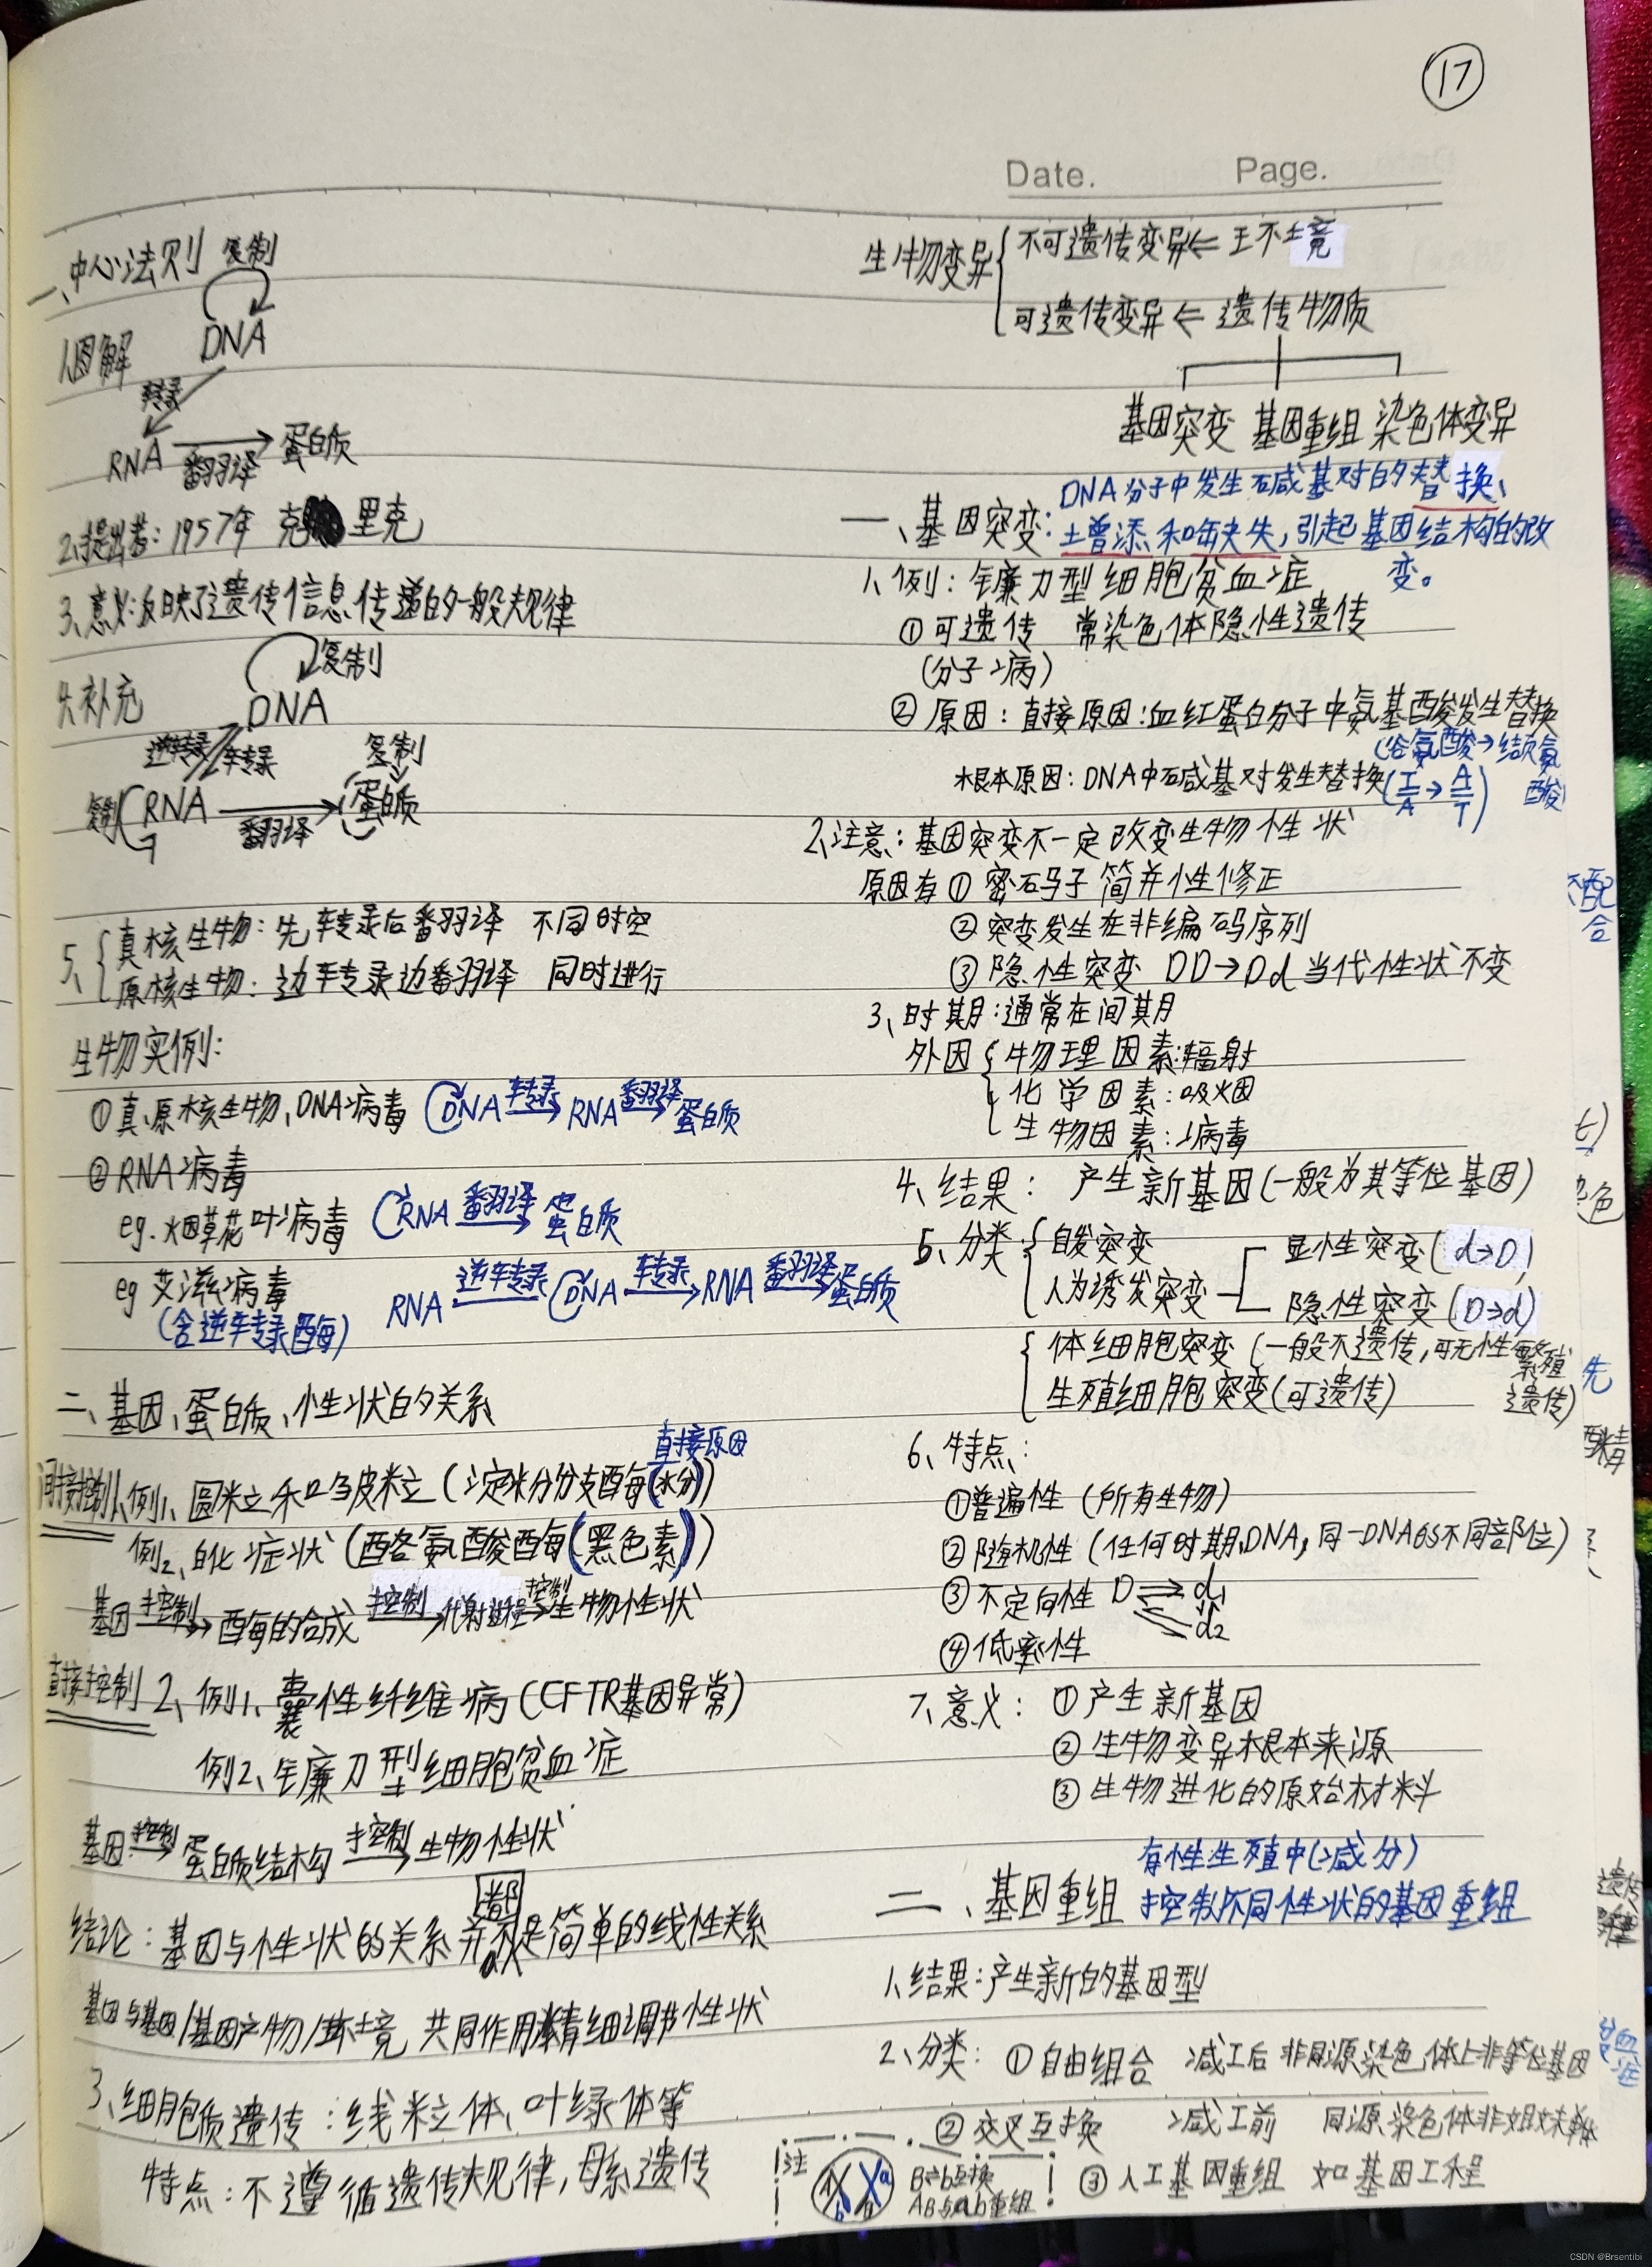 17
Date. Page.
一、中心法则
复制
1、图解 DNA
转录
RNA → 蛋白质
翻译
2、提出者：1957年 克里克
3、意义：反映了遗传信息传递的一般规律
4、补充
复制
DNA
逆转录 转录 复制
复制 RNA → (蛋白质
翻译
5、{真核生物：先转录后翻译 不同时空
原核生物：边转录边翻译 同时进行
生物实例：
①真、原核生物、DNA病毒 DNA 转录→ RNA 翻译→ 蛋白质
②RNA病毒
eg. 烟草花叶病毒 RNA 翻译→ 蛋白质
eg 艾滋病毒 RNA 逆转录→ DNA 转录→ RNA 翻译→ 蛋白质
(含逆转录酶)
二、基因、蛋白质、性状的关系
直接原因
间接控制 1、例1、圆粒和皱皮粒（淀粉分支酶(水分)）
例2、白化症状（酪氨酸酶(黑色素)）
基因 控制→ 酶的合成 控制→ 代谢过程 控制→ 生物性状
直接控制 2、例1、囊性纤维病（CFTR基因异常）
例2、镰刀型细胞贫血症
基因 控制→ 蛋白质结构 控制→ 生物性状
都
结论：基因与性状的关系并不是简单的线性关系
基因与基因/基因产物/环境 共同作用精细调节性状
3、细胞质遗传：线粒体、叶绿体等
特点：不遵循遗传规律，母系遗传
生物变异{不可遗传变异⇐ 环境
可遗传变异⇐ 遗传物质
基因突变 基因重组 染色体变异
DNA分子中发生碱基对的替换、
一、基因突变：增添和缺失，引起基因结构的改
变。
1、例：镰刀型细胞贫血症
①可遗传 常染色体隐性遗传
(分子病)
②原因：直接原因：血红蛋白分子中氨基酸发生替换
(谷氨酸→缬氨
酸)
根本原因：DNA中碱基对发生替换(T/A→A/T)
2、注意：基因突变不一定改变生物性状
原因有①密码子简并性修正
②突变发生在非编码序列
③隐性突变 DD→Dd 当代性状不变
3、时期：通常在间期
外因{物理因素：辐射
化学因素：吸烟
生物因素：病毒
4、结果： 产生新基因(一般为其等位基因)
5、分类{自发突变 显性突变(d→D)
人为诱发突变 隐性突变(D→d)
{体细胞突变(一般不遗传，可无性繁殖
遗传)
生殖细胞突变(可遗传)
6、特点：
①普遍性（所有生物）
②随机性（任何时期、DNA，同一DNA的不同部位）
③不定向性 D d1
d2
④低频性
7、意义：①产生新基因
②生物变异根本来源
③生物进化的原始材料
有性生殖中(减分)
二、基因重组 控制不同性状的基因重组
1、结果：产生新的基因型
2、分类：①自由组合 减I后 非同源染色体上非等位基因
②交叉互换 减I前 同源染色体非姐妹单体
③人工基因重组 如基因工程
注 B⇌b互换
AB与ab重组
配
合
七)
色
先
酶
遗传
CSDN @Brsentibi